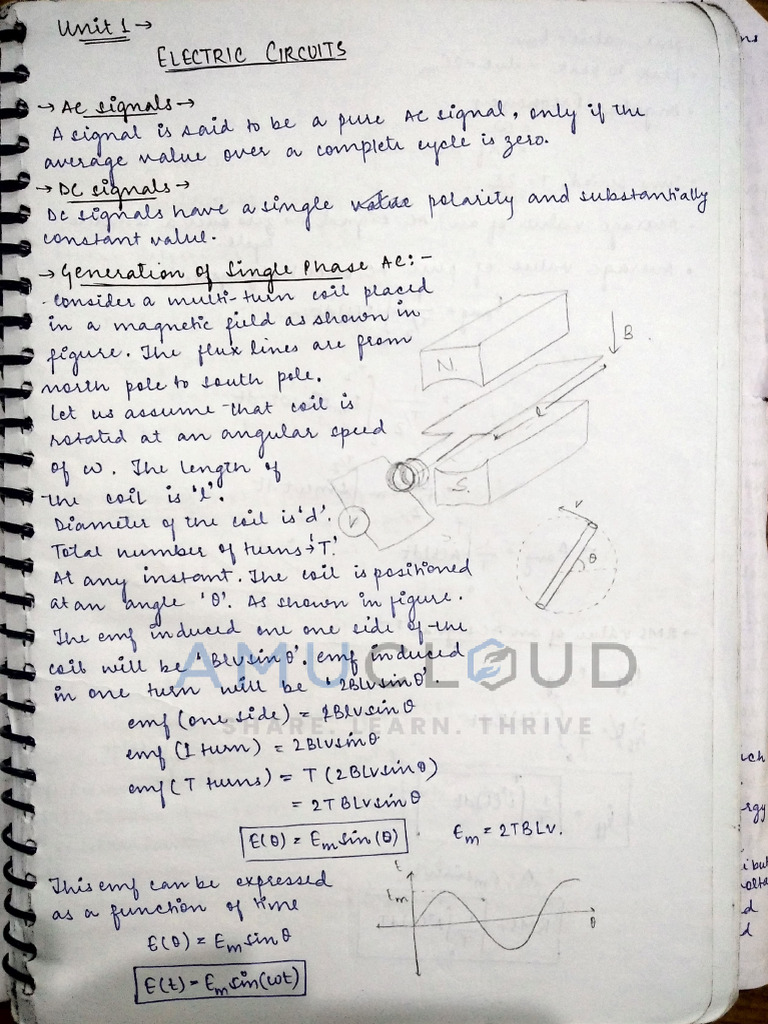 Unit 1 →
ELECTRIC CIRCUITS
→ AC signals →
A signal is said to be a pure AC signal, only if the
average value over a complete cycle is zero.
→ DC signals →
DC signals have a single value polarity and substantially
constant value.
→ Generation of Single Phase AC:-
Consider a multi-turn coil placed
in a magnetic field as shown in
figure. The flux lines are from
north pole to south pole.
Let us assume that coil is
rotated at an angular speed
of ω. The length of
the coil is 'l'.
Diameter of the coil is 'd'.
Total number of turns → 'T'.
At any instant. The coil is positioned
at an angle 'θ'. As shown in figure.
The emf induced one one side of the
coil will be 'Blvsinθ'. emf induced
in one turn will be '2BLvsinθ'.
emf (one side) = Blvsinθ
emf (1 turn) = 2BLvsinθ
emf (T turns) = T (2BLvsinθ)
= 2TBLvsinθ
E(θ) = Em sin(θ)
Em = 2TBLv.
This emf can be expressed
as a function of time
E(θ) = Em sinθ
E(t) = Em sin(ωt)
N.
B.
L
S.
V
v
θ
Em
θ
AMUCLOUD
SHARE. LEARN. THRIVE
ns
uch
rgy
i but
olta
d
d